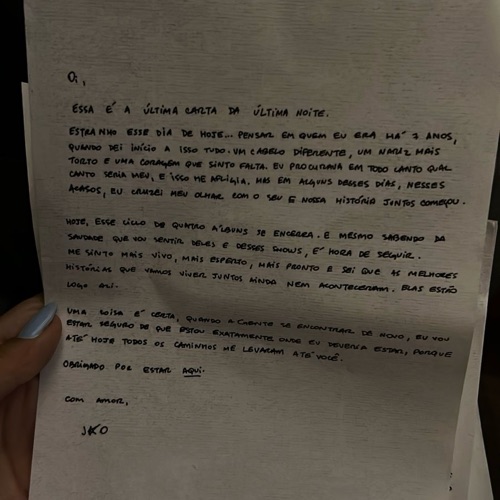 Oi,
ESSA É A ÚLTIMA CARTA DA ÚLTIMA NOITE.
ESTRANHO ESSE DIA DE HOJE... PENSAR EM QUEM EU ERA HÁ 7 ANOS,
QUANDO DEI INÍCIO A ISSO TUDO. UM CABELO DIFERENTE, UM NARIZ MAIS
TORTO E UMA CORAGEM QUE SINTO FALTA. EU PROCURAVA EM TODO CANTO QUAL
CANTO SERIA MEU, E ISSO ME AFLIGIA. MAS EM ALGUNS DESSES DIAS, NESSES
ACASOS, EU CRUZEI MEU OLHAR COM O SEU E NOSSA HISTÓRIA JUNTOS COMEÇOU.
HOJE, ESSE CICLO DE QUATRO ÁLBUNS SE ENCERRA. E MESMO SABENDO DA
SAUDADE QUE VOU SENTIR DELES E DESSES SHOWS, É HORA DE SEGUIR.
ME SINTO MAIS VIVO, MAIS ESPERTO, MAIS PRONTO E SEI QUE AS MELHORES
HISTÓRIAS QUE VAMOS VIVER JUNTOS AINDA NEM ACONTECERAM. ELAS ESTÃO
LOGO ALI.
UMA COISA É CERTA, QUANDO A GENTE SE ENCONTRAR DE NOVO, EU VOU
ESTAR SEGURO DE QUE ESTOU EXATAMENTE ONDE EU DEVERIA ESTAR, PORQUE
ATÉ HOJE TODOS OS CAMINHOS ME LEVARAM ATÉ VOCÊ.
OBRIGADO POR ESTAR AQUI.
COM AMOR,
JÃO